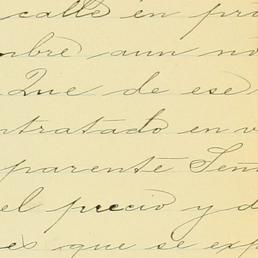 calle en pro
mbre aun no
Que de ese
ntratado en v
parente Señ
el precio y d
es que se esp